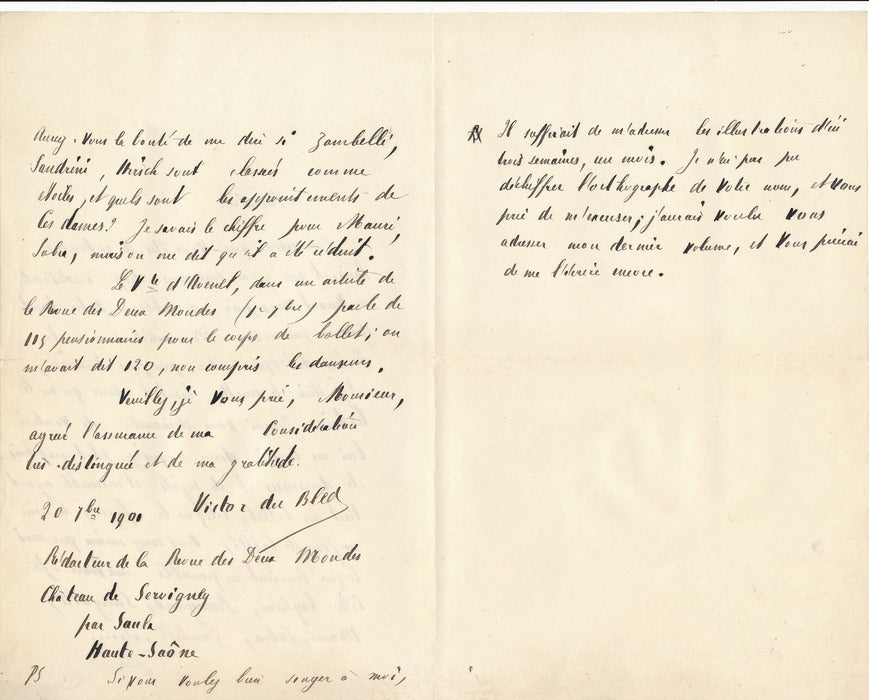 Aurez-vous la bonté de me dire si Zambelli,
Sandrini, Hirsch sont classées comme
étoiles, et quels sont les appointements de
ces dames? Je savais le chiffre pour Mauri,
Subra, mais on me dit qu'il a été réduit.
Le Vte d'Avenel, dans un article de
la Revue des Deux Mondes (1er 7bre) parle de
115 pensionnaires pour le corps de ballet; on
m'avait dit 120, non compris les danseurs.
Veuillez, je vous prie, Monsieur,
agréer l'assurance de ma Considération
très distinguée et de ma gratitude.
20 7bre 1901 Victor du Bled
Rédacteur de la Revue des Deux Mondes
Château de Servigney
par Saulx
Haute-Saône
PS Si vous voulez bien songer à moi,
Il suffirait de m'adresser les illustrations d'ici
trois semaines, un mois. Je n'ai pas pu
déchiffrer l'orthographe de votre nom, et vous
prie de m'excuser; j'aurais voulu vous
adresser mon dernier volume, et vous prierai
de me l'écrire encore.